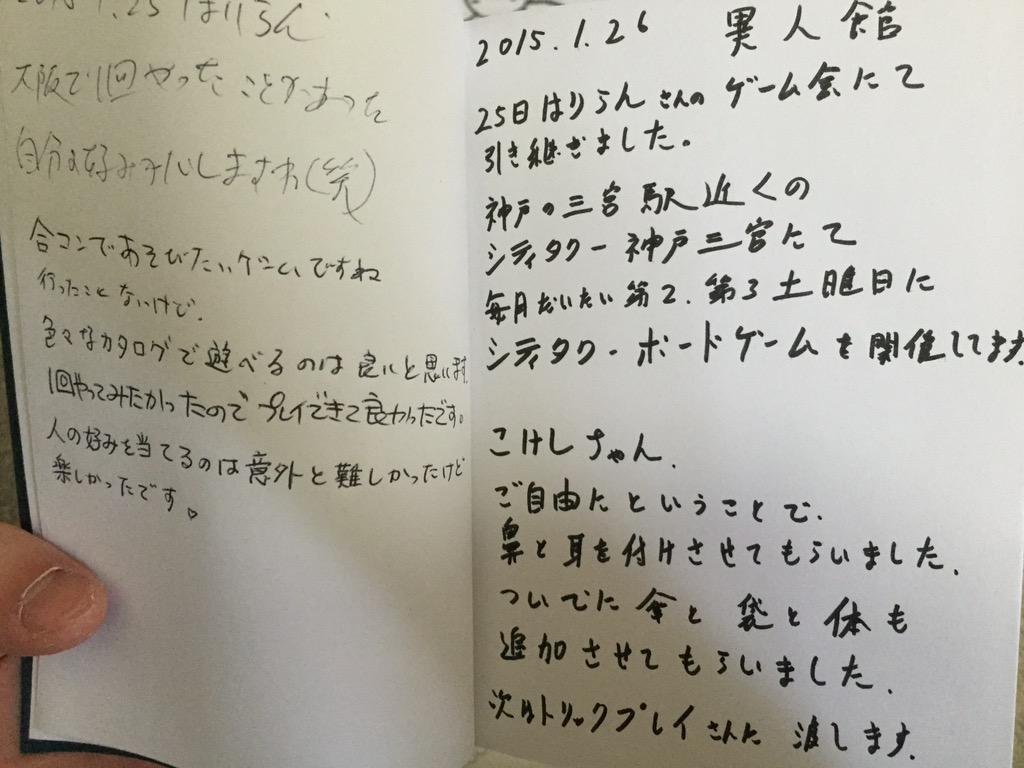 1.25 はりらん
大阪で1回やったことがあった
自分の好み しますわ(笑)
合コンであそびたいゲームですね
行ったことないけど.
色々なカタログで遊べるのは良いと思います.
1回やってみたかったのでプレイできて良かったです。
人の好みを当てるのは意外と難しかったけど
楽しかったです。♡
2015.1.26 異人館
25日はりらんさんのゲーム会にて
引き継ぎました。
神戸の三宮駅近くの
シティタワー神戸三宮にて
毎月だいたい第2.第3土曜日に
シティタワーボードゲームを開催してます.
こけしちゃん.
ご自由にということで.
鼻と耳を付けさせてもらいました.
ついでに傘と袋と体も
追加させてもらいました.
次はトリックプレイさんに渡します.